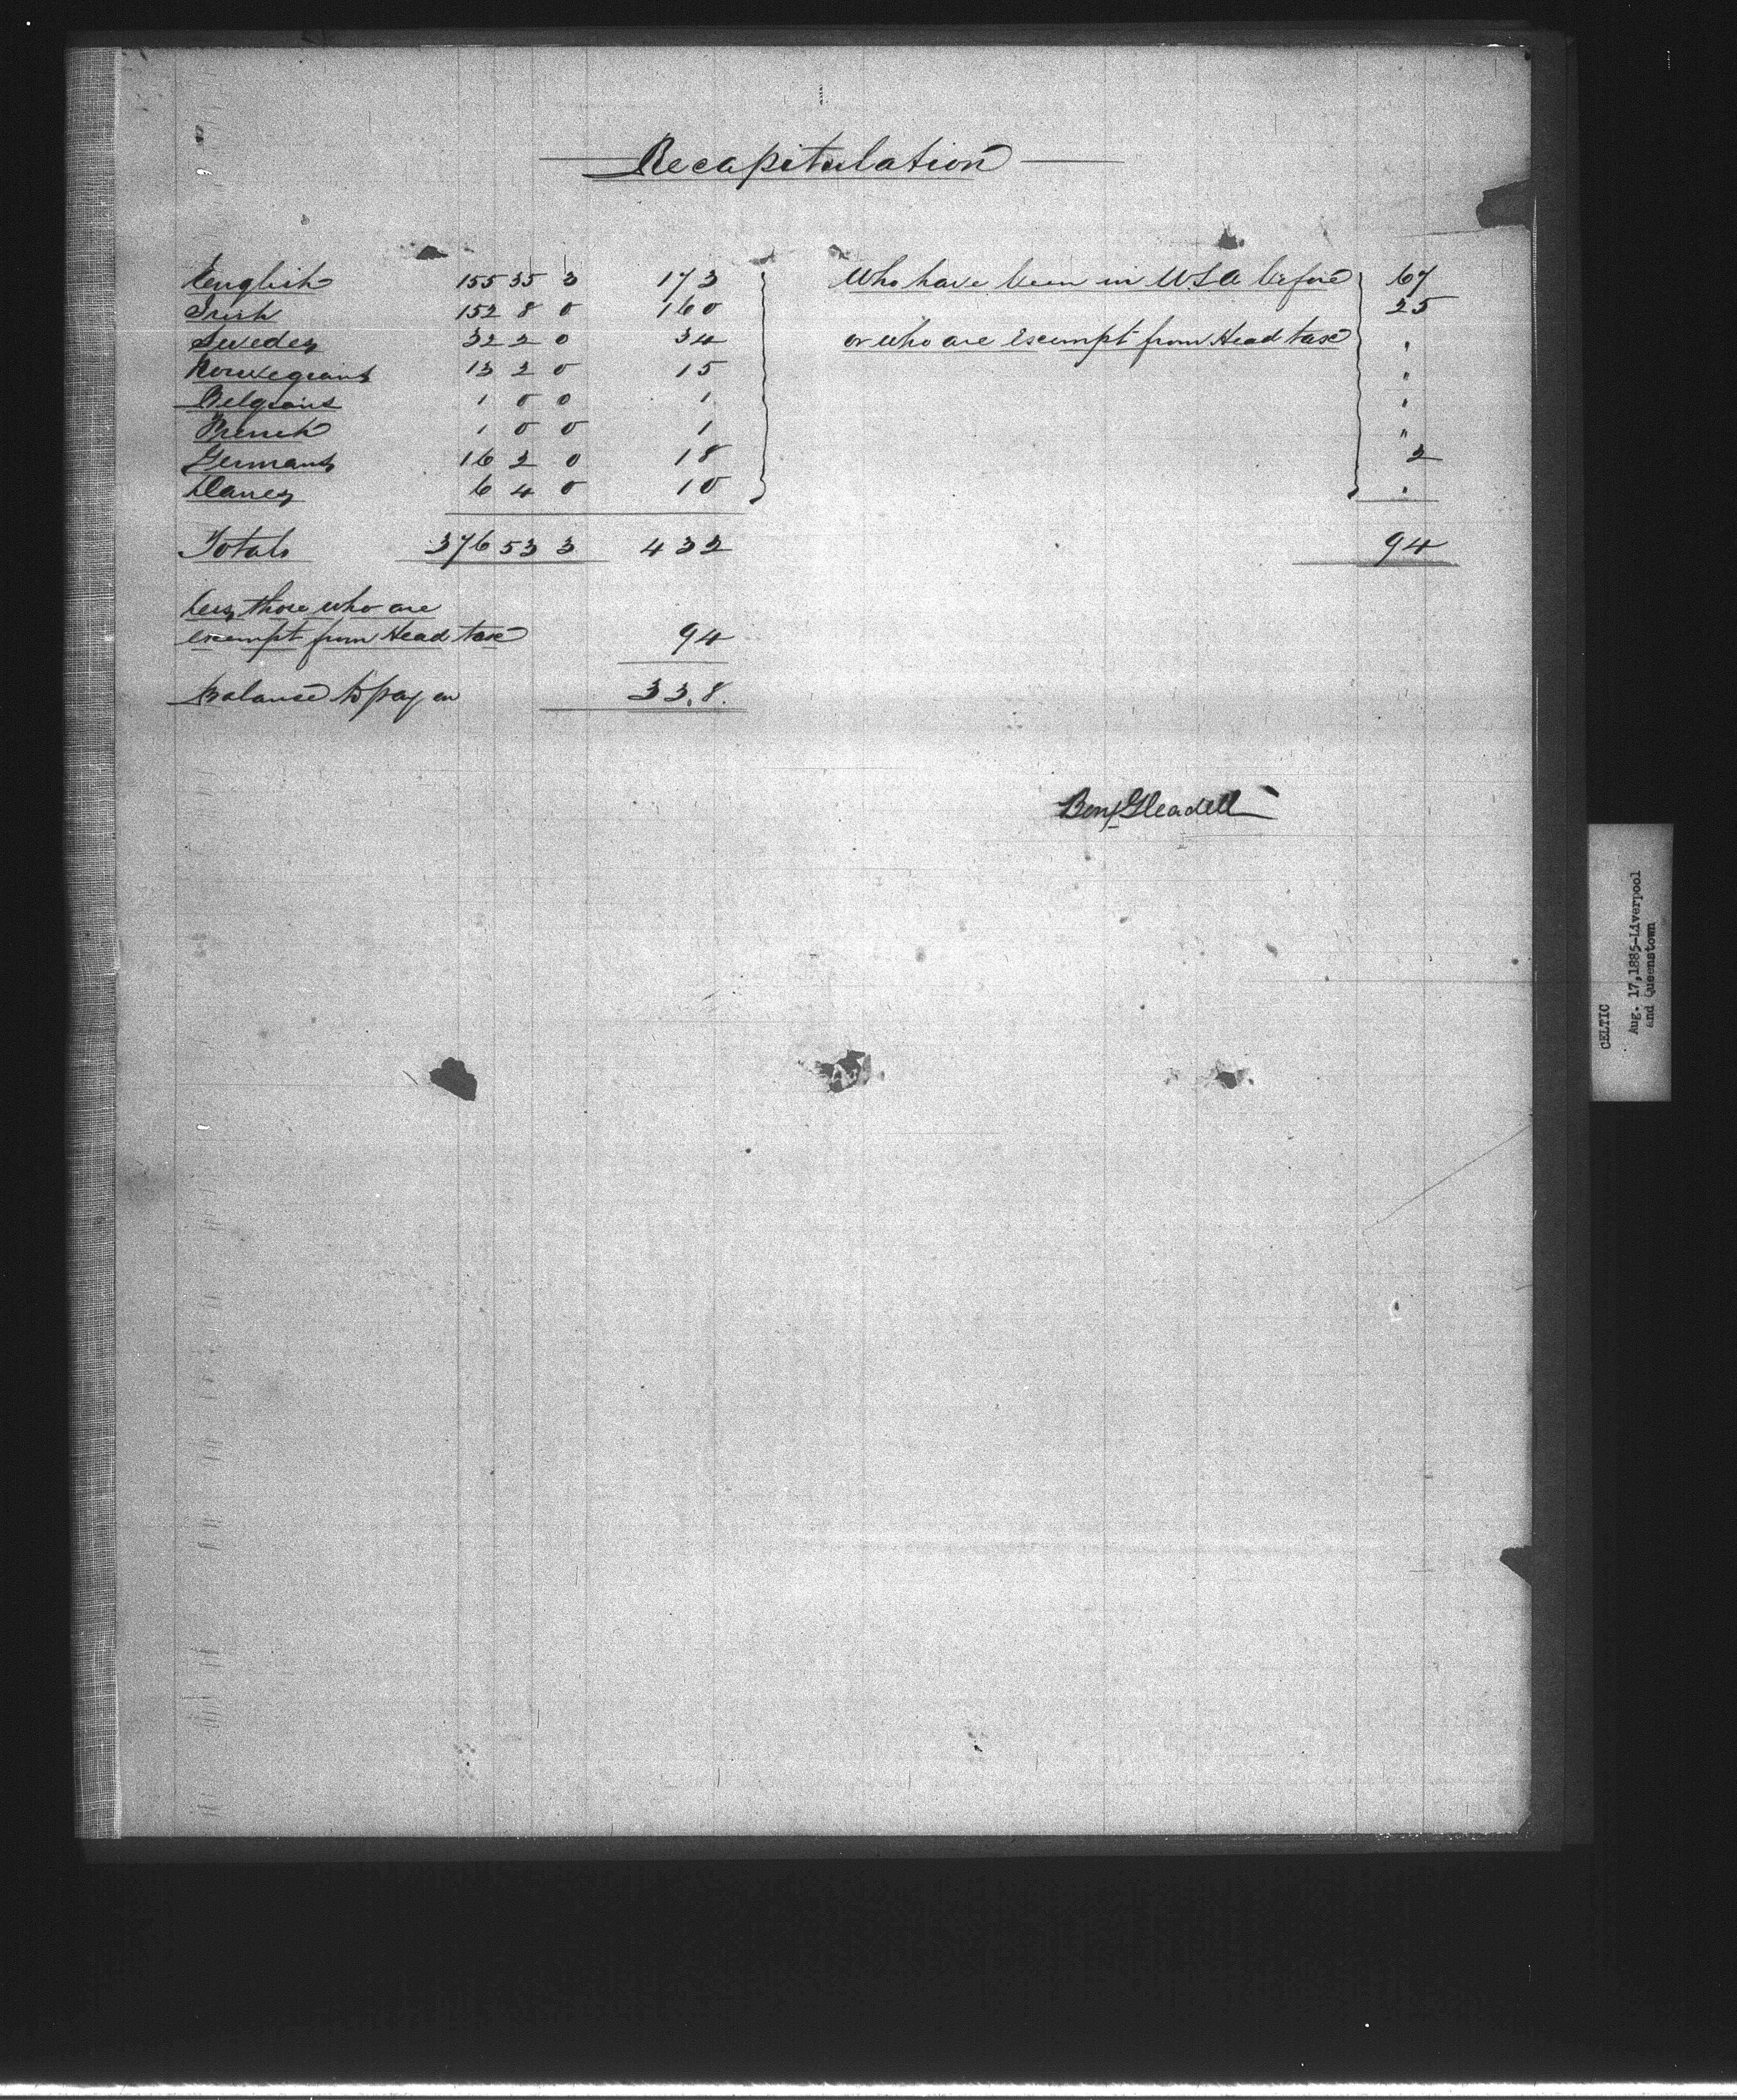 Recapitulation
English 155 35 3 173 Who have been in USA before 67
Irish 152 8 0 160 25
Swedes 32 2 0 34 or who are exempt from Head taxe "
Norwegians 13 2 0 15 "
Belgians 1 0 0 1 "
French 1 0 0 1 "
Germans 16 2 0 18 2
Danes 6 4 0 10 "
Totals 376 53 3 432 94
Less those who are
exempt from Head taxe 94
Balance to pay on 33.8.
Benj Gleadell
CELTIC
Aug. 17,1885-Liverpool
and Queenstown